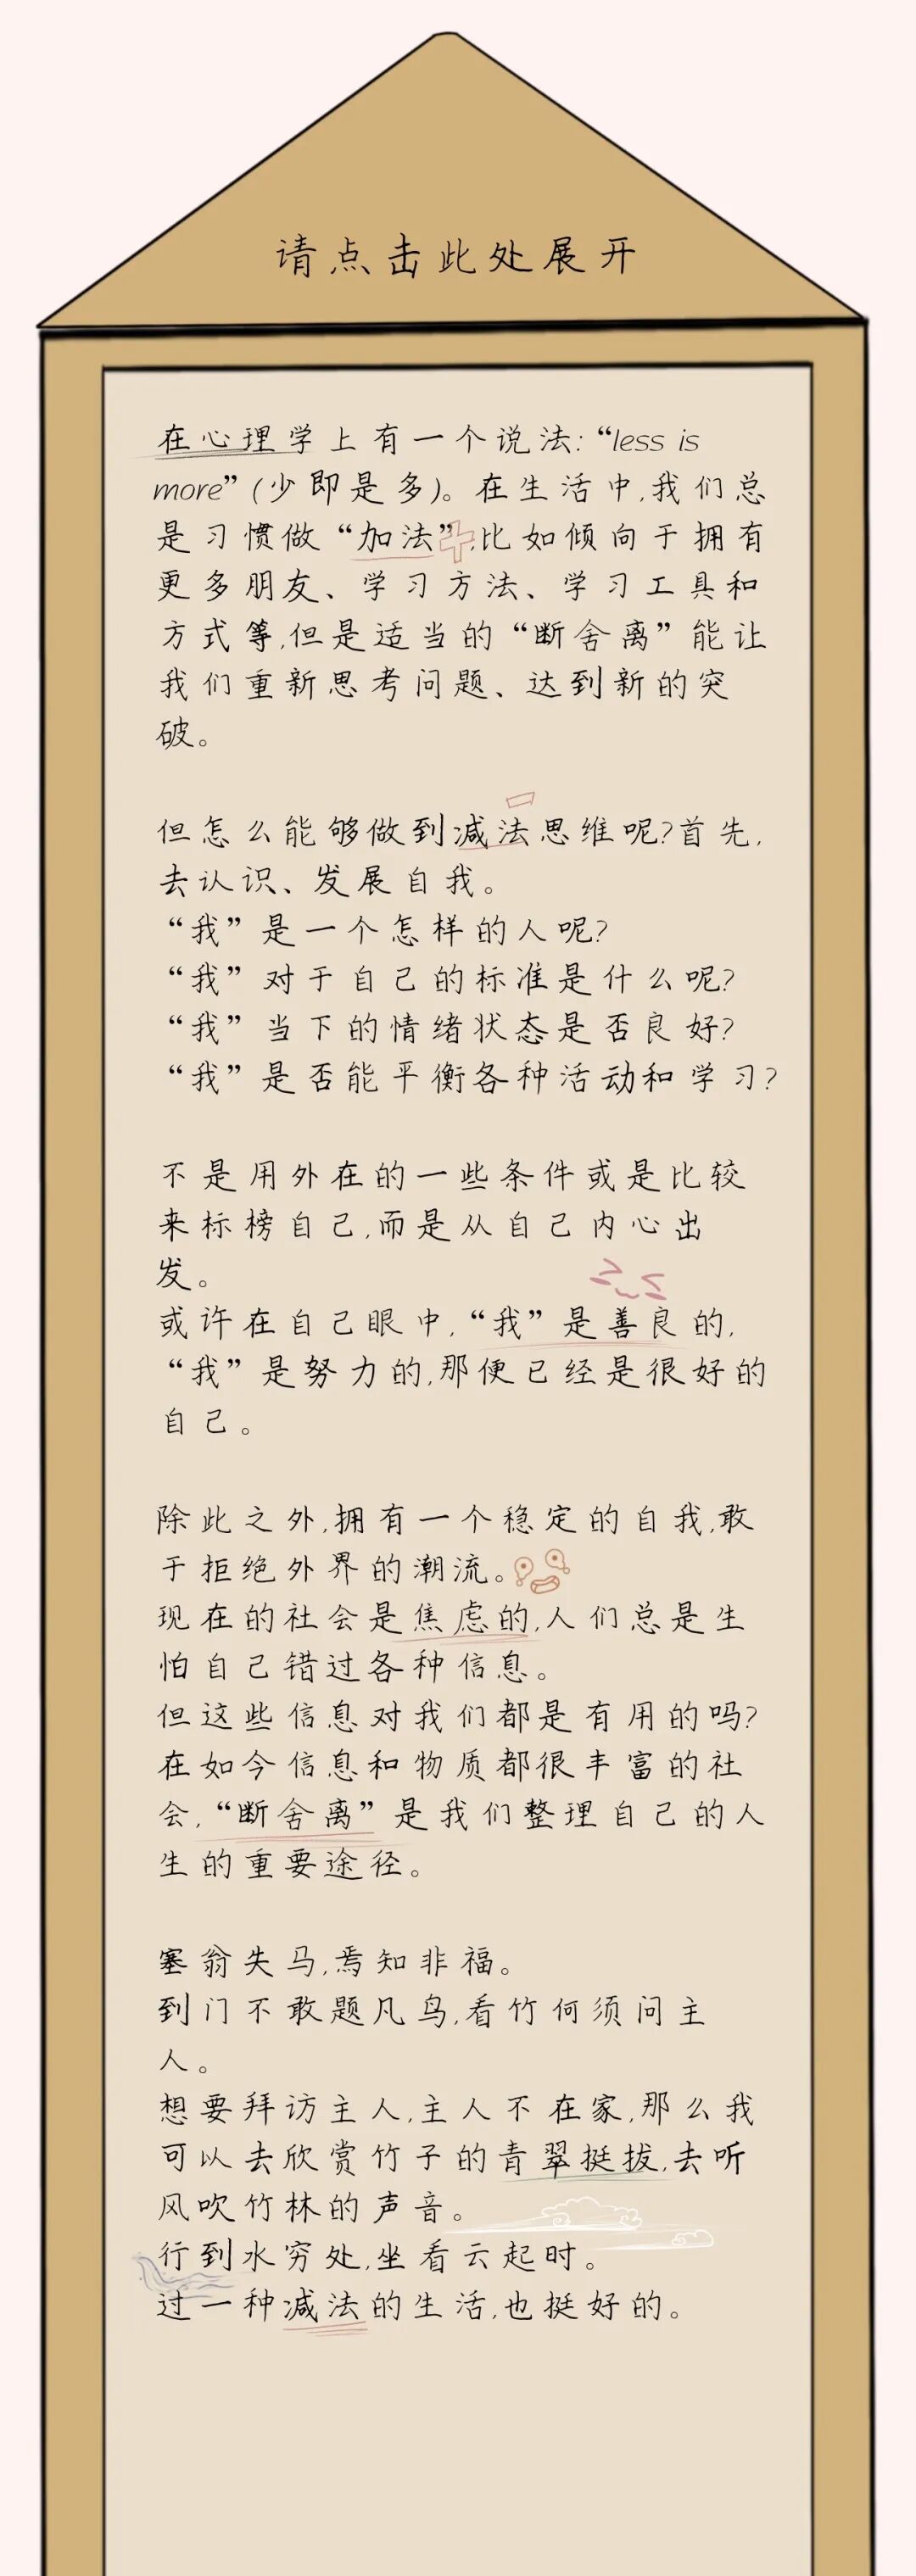 请点击此处展开
在心理学上有一个说法:“less is
more”(少即是多)。在生活中,我们总
是习惯做“加法”,比如倾向于拥有
更多朋友、学习方法、学习工具和
方式等,但是适当的“断舍离”能让
我们重新思考问题、达到新的突
破。
但怎么能够做到减法思维呢?首先,
去认识、发展自我。
“我”是一个怎样的人呢?
“我”对于自己的标准是什么呢?
“我”当下的情绪状态是否良好?
“我”是否能平衡各种活动和学习?
不是用外在的一些条件或是比较
来标榜自己,而是从自己内心出
发。
或许在自己眼中,“我”是善良的,
“我”是努力的,那便已经是很好的
自己。
除此之外,拥有一个稳定的自我,敢
于拒绝外界的潮流。
现在的社会是焦虑的,人们总是生
怕自己错过各种信息。
但这些信息对我们都是有用的吗?
在如今信息和物质都很丰富的社
会,“断舍离”是我们整理自己的人
生的重要途径。
塞翁失马,焉知非福。
到门不敢题凡鸟,看竹何须问主
人。
想要拜访主人,主人不在家,那么我
可以去欣赏竹子的青翠挺拔,去听
风吹竹林的声音。
行到水穷处,坐看云起时。
过一种减法的生活,也挺好的。